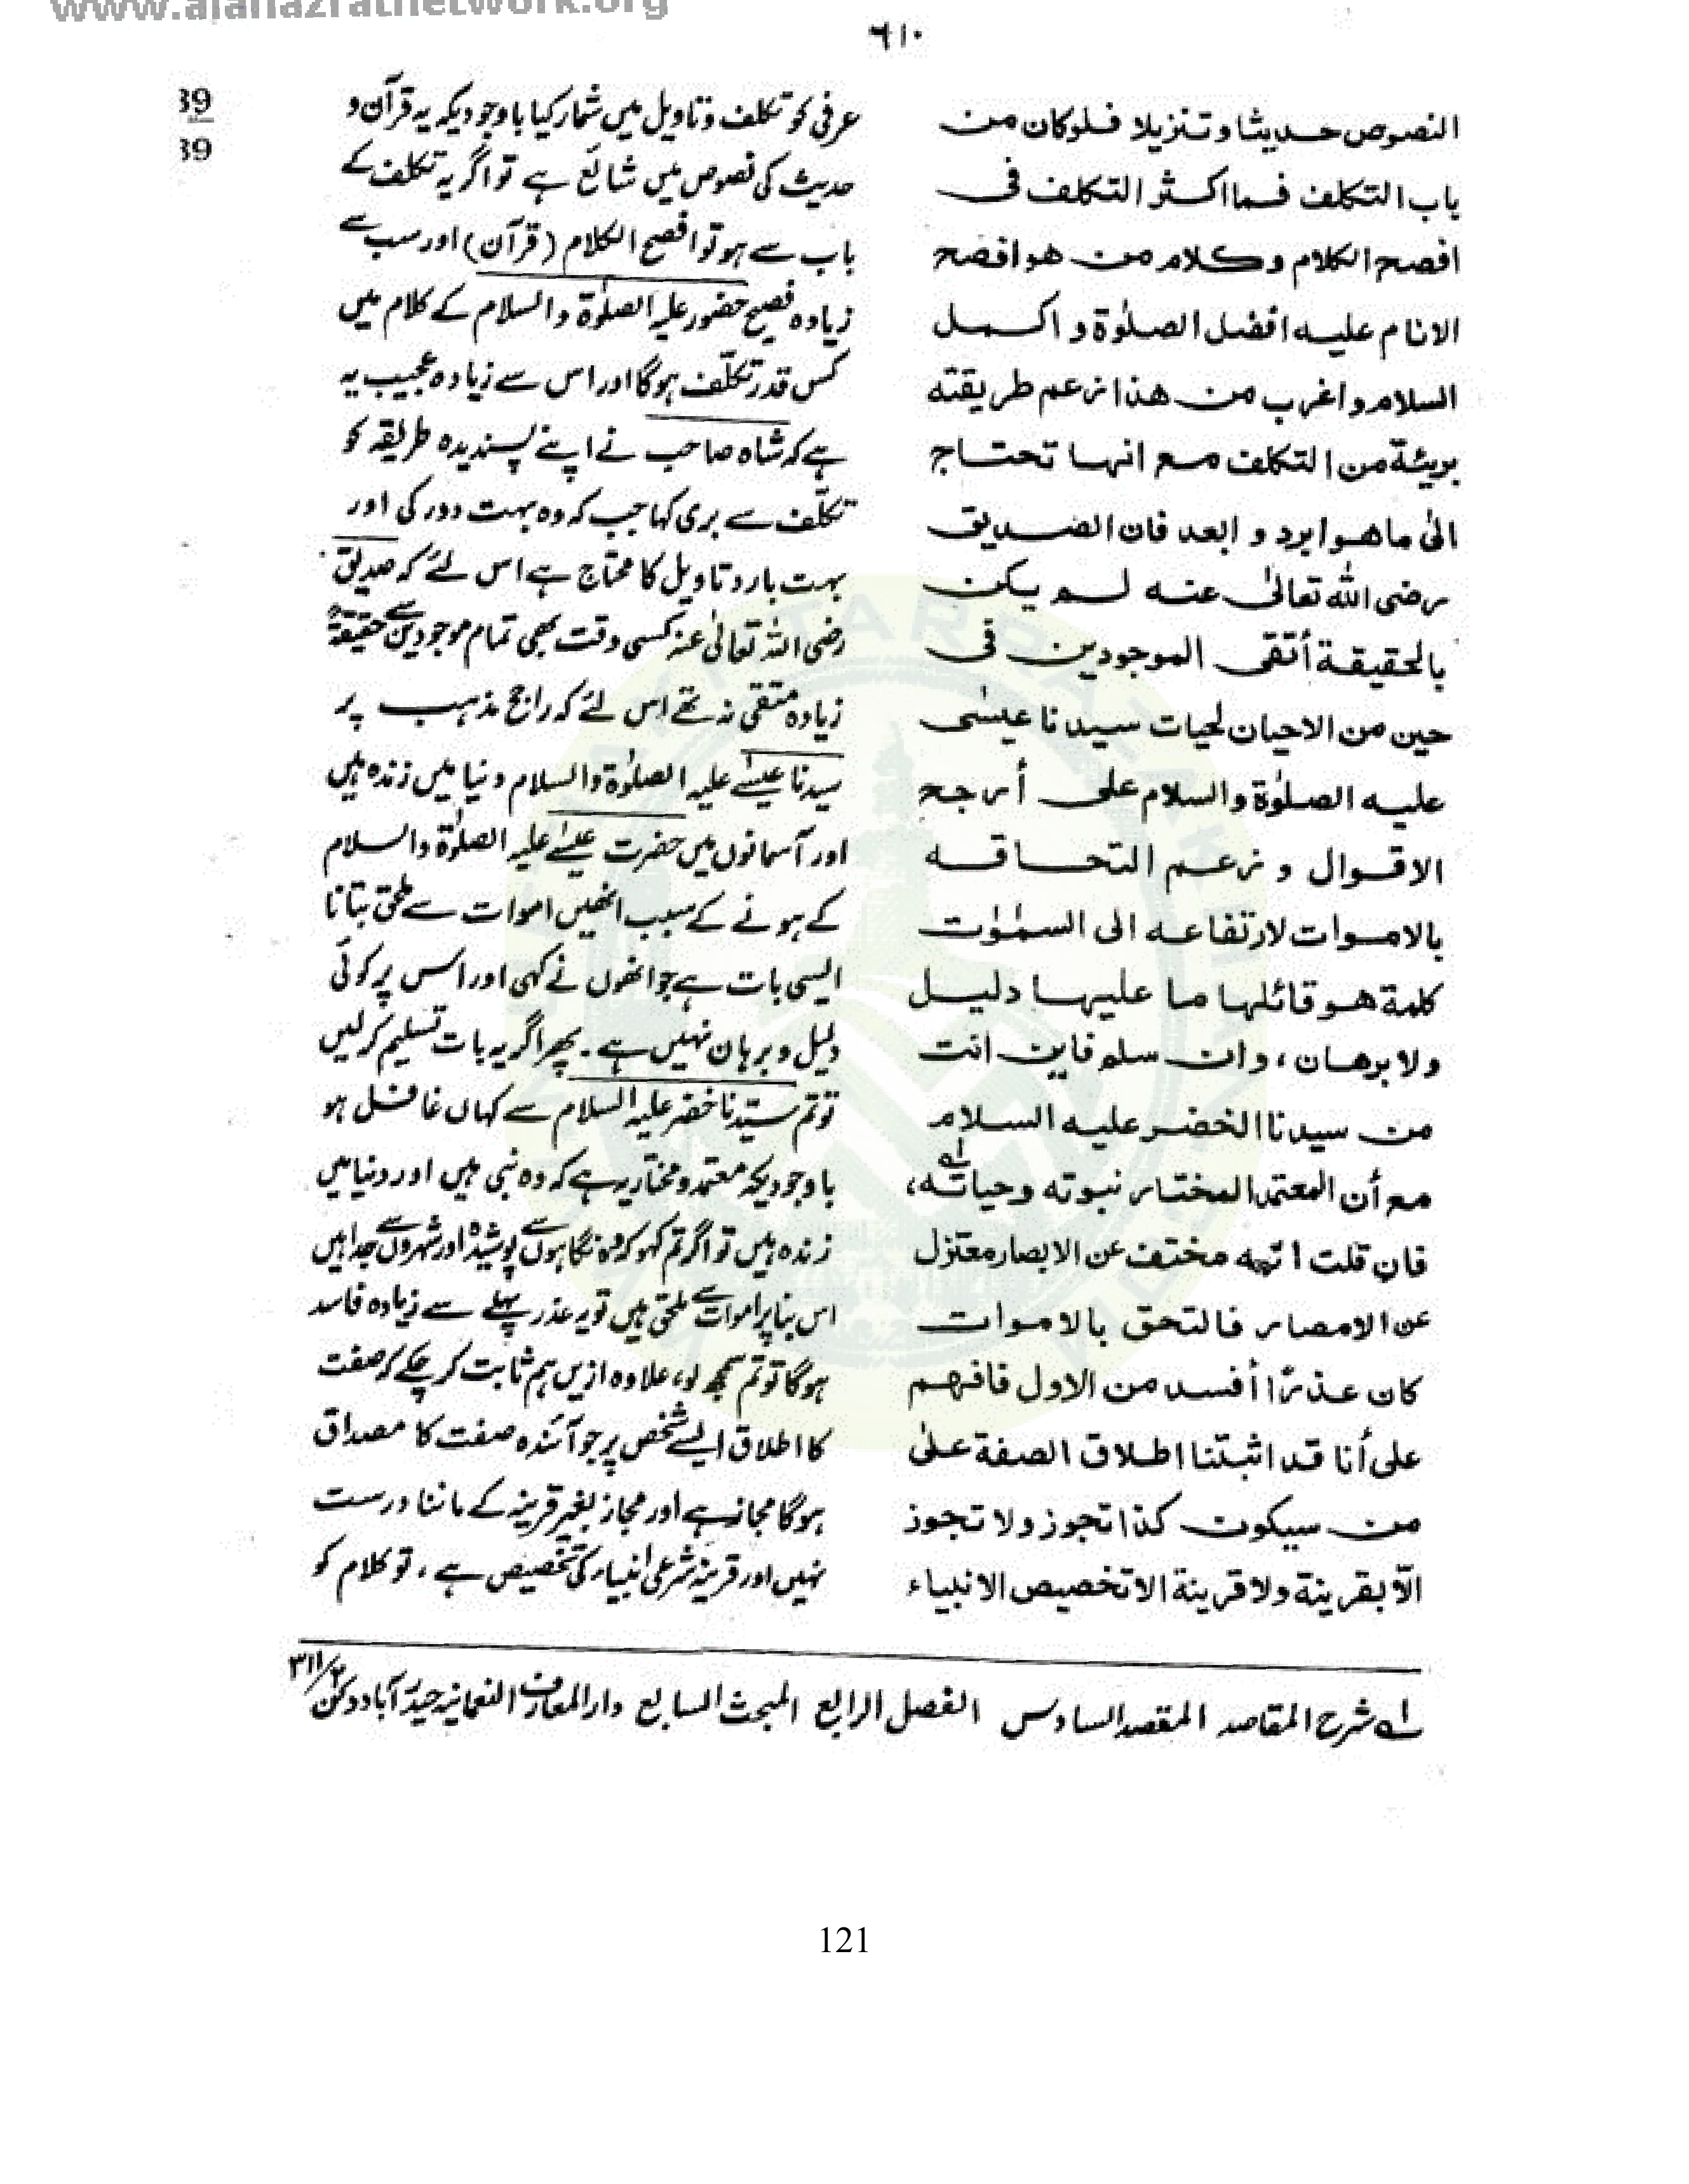 www.alahazratnetwork.org
٦١٠
39
39
النصوص حديثا وتنزيلا فلوكان من
باب التكلف فما اكثر التكلف فى
افصح الكلام وكلام من هو افصح
الانام عليه افضل الصلٰوة و اكمل
السلام و اغرب من هذا زعم طريقته
بريئة من التكلف مع انها تحتاج
الىٰ ما هو ابرد و ابعد فان الصديق
رضى الله تعالىٰ عنه لم يكن
بالحقيقة أتقى الموجودين فى
حين من الاحيان لحيات سيدنا عيسٰى
عليه الصلٰوة والسلام على أرجح
الاقوال و زعم التحاقه
بالاموات لارتفاعه الى السمٰوٰت
كلمة هو قائلها ما عليها دليل
ولا برهان، وان سلم فاين انت
من سيدنا الخضر عليه السلام
مع أن المعتمد المختار نبوته وحياته لے،
فان قلت انه مختف عن الابصار معتزل
عن الامصار فالتحق بالاموات
كان عذرًا أفسد من الاول فافهم
على أنا قد اثبتنا اطلاق الصفة علىٰ
من سيكون كذا تجوز ولا تجوز
الّا بقرينة ولا قرينة الا تخصيص الانبياء
عرفی کو تکلف و تاویل میں شمار کیا باوجودیکہ یہ قرآن و
حدیث کی نصوص میں شائع ہے تو اگر یہ تکلف کے
باب سے ہو تو افصح الکلام (قرآن) اور سب سے
زیادہ فصیح حضور علیہ الصلٰوۃ والسلام کے کلام میں
کس قدر تکلّف ہوگا اور اس سے زیادہ عجیب یہ
ہے کہ شاہ صاحب نے اپنے پسندیدہ طریقہ کو
تکلّف سے بری کہا جب کہ وہ بہت دور کی اور
بہت بارد تاویل کا محتاج ہے اس لئے کہ صدیق
رضی اللہ تعالٰی عنہ کسی وقت بھی تمام موجودین سے حقیقۃً
زیادہ متقی نہ تھے اس لئے کہ راجح مذہب پر
سیدنا عیسٰے علیہ الصلٰوۃ والسلام دنیا میں زندہ ہیں
اور آسمانوں میں حضرت عیسٰے علیہ الصلٰوۃ والسلام
کے ہونے کے سبب انھیں اموات سے ملحق بتانا
ایسی بات ہے جو انھوں نے کہی اور اس پر کوئی
دلیل و برہان نہیں ہے۔ پھر اگر یہ بات تسلیم کر لیں
تو تم سیّدنا خضر علیہ السلام سے کہاں غافل ہو
باوجودیکہ معتمد و مختار یہ ہے کہ وہ نبی ہیں اور دنیا میں
زندہ ہیں تو اگر تم کہو کہ وہ نگاہوں سے پوشیدہ اور شہروں سے جدا ہیں
اس بنا پر اموات سے ملحق ہیں تو یہ عذر پہلے سے زیادہ فاسد
ہوگا تو تم سمجھ لو، علاوہ ازیں ہم ثابت کر چکے کہ صفت
کا اطلاق ایسے شخص پر جو آئندہ صفت کا مصداق
ہوگا مجاز ہے اور مجاز بغیر قرینہ کے ماننا درست
نہیں اور قرینہ شرعی انبیاء کی تخصیص ہے، تو کلام کو
لے شرح المقاصد المقصد السادس الفصل الرابع المبحث السابع دارالمعارف النعمانیہ حیدرآباد دکن ۲/۳۱۱
121